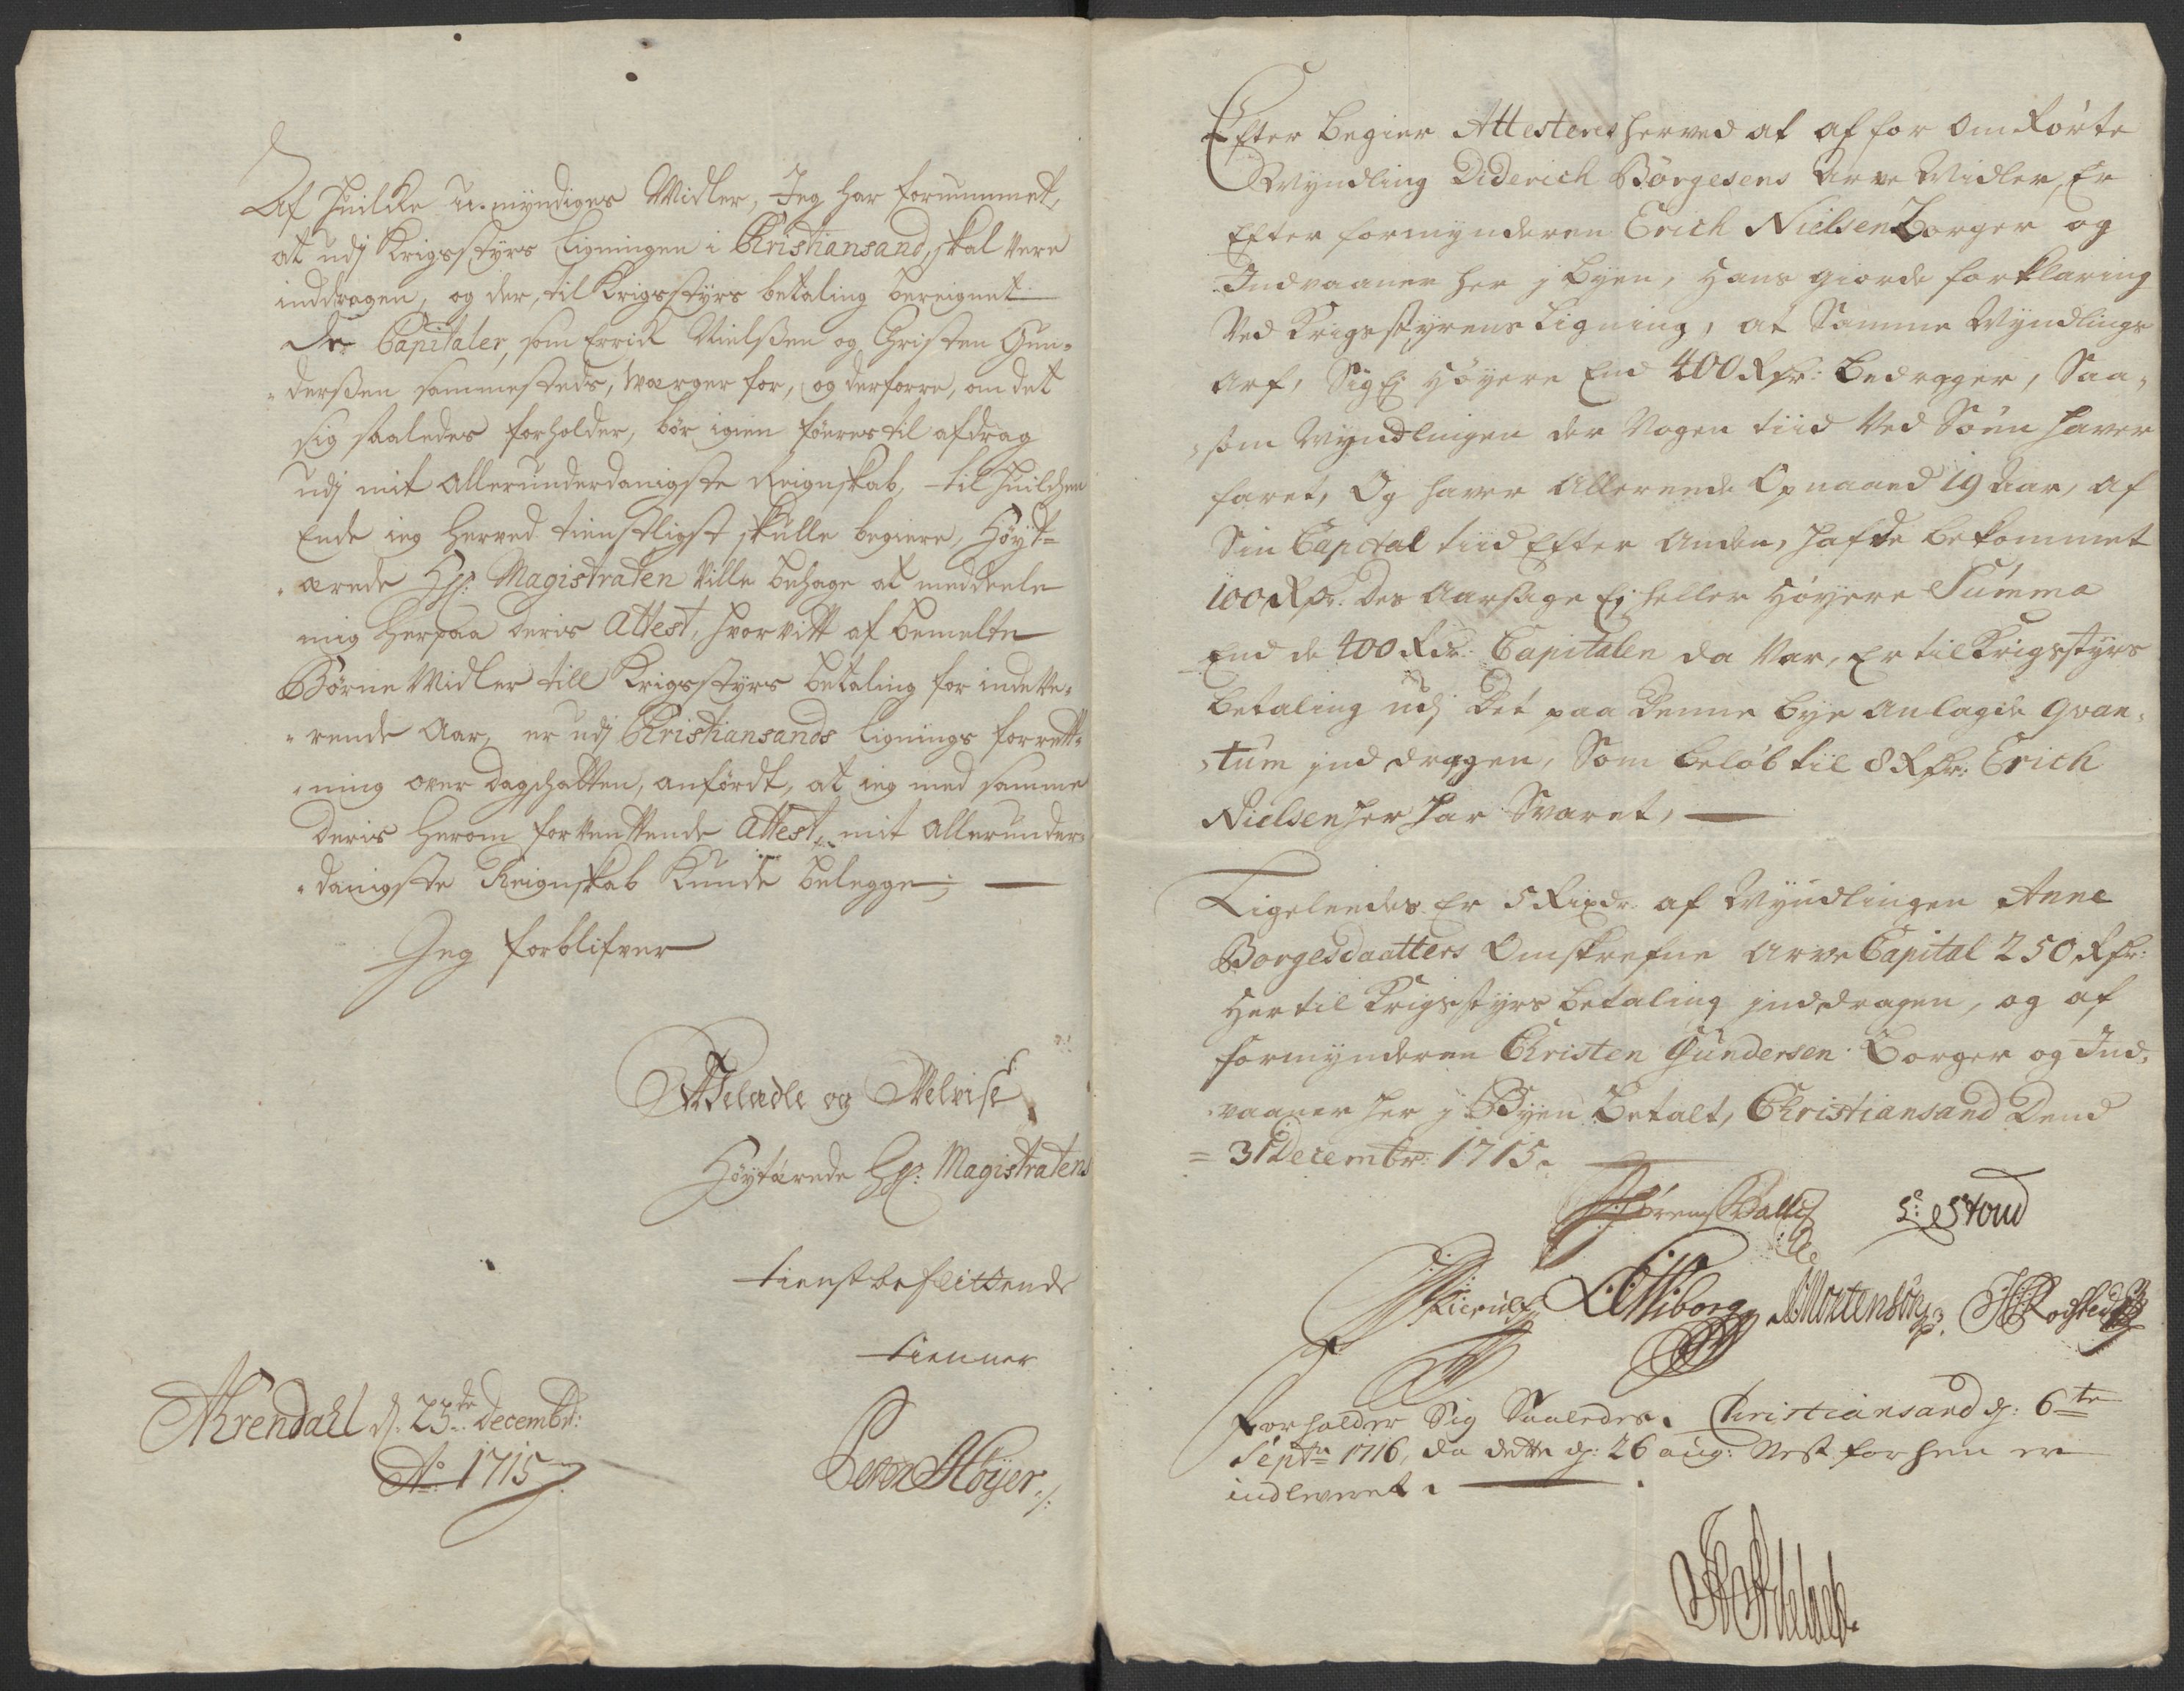 Af huilke u-myndiges Midler, Jeg har fornummet,
at udj Krigsstyrs ligningen i Christiansand, skal vere
inddragen, og der, til Krigsstyrs betaling bereignet
de Capitaler, som Errik Nielsen og Christen Gun-
derssen sammesteds, Værger for, og derforre, om det
sig saaledes forholder, bør igien føeres til afdrag
udj mit allerunderdanigste Reignskab, til huilchen
Ende ieg herved tienstligst skulle begiere, Høyt-
ærede Hr: Magistraten ville behage at meddeele
mig herpaa deris Attest, hvorvitt af bemelte
Børne Midler till Krigsstyrs betaling for indeve-
rende Aar, er udj Christiansands lignings forrett-
ning over dagschatten, anfördt, at ieg med samme
deris herom forventende Attest, mit allerunder-
danigste Reignskab kunde belegge;
Jeg forblifver
WelEdle og Velvise
Høytærede Hr: Magistratens
tienstbeflittende
tienner
Ahrendahl d. 23de Decembr:
Ao 1715
Peter Høyer
Efter begier Attesteres herved at af for omrørte
Myndling Diderich Börgesens Arve Midler, Er
Efter formynderen Erich Nielsen Borger og
Indvaaner her j byen, hans giorde forklaring
ved Krigsstyrens Ligning, at Samme Myndlings
Arf, Sig Ej høyere End 400 Rdr: bedrager, Saa-
som Myndlingen der Nogen tiid ved Söen haver
faret, og haver allerende opnaaed 19 Aar, af
Sin Capital tiid Efter anden, hafde bekommet
100 Rdr. des Aarsage Ej heller høyere Summa
End de 400 Rdr: Capitalen da var, Er til Krigsstyrs
betaling udj Det paa denne bye anlagde qvan-
tum inddragen, Som beløb til 8 Rdr: Erich
Nielsen her har Svaret,
Ligeleedes Er 5 Rixdr af Myndlingen Anne
Borgesdaatters Omskrefne Arve Capital 250 Rdr:
her til Krigsstyrs betaling inddragen, og af
formynderen Christen Gundersen Borger og Ind-
vaaner her j Byen betalt, Christiansand Dend
31 Decembr: 1715.
Stoud
Wiborg Mortensön
forholder Sig Saaledes. Christiansand d: 6te
Septr 1716, da dette d: 26 aug: nest forhen er
indleveret.